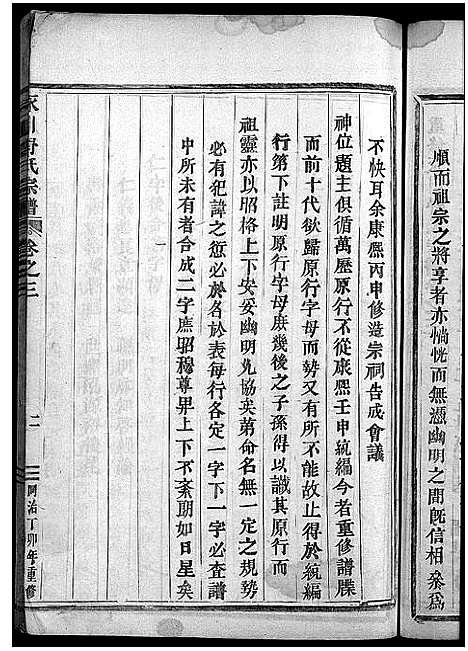 順而祖宗之將享者亦惝恍而無憑幽明之間旣信相發爲
不快耳余康熙丙申修造宗祠告成會議
神位題主俱循萬歷原行不從康熙壬申統編今者重修譜牒
而前十代欲歸原行字母而勢又有所不能故止得於統編
行第下註明原行字母庶幾後之子孫得以識其原行而
祖靈亦以昭格上下安妥幽明允協矣第命名無一定之規勢
必有犯諱之愆必於各於表每行各定一字下一字必查譜
中所未有者合成二字庶昭穆尊昇上下不紊朗如日星矣
川舒氏宗譜 卷之三 二 同治丁卯年重修